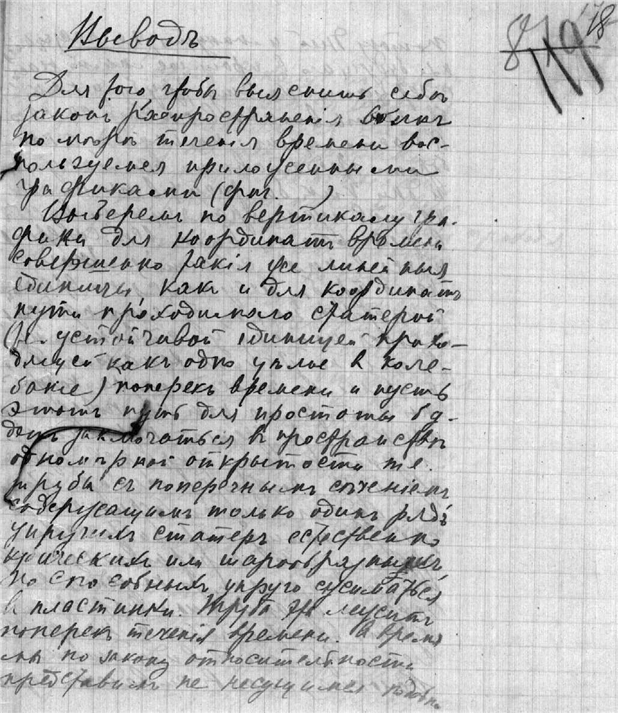 Выводъ
119 78
Для того чтобы выяснить себѣ
законъ распространенія волнъ
по мѣрѣ теченія времени вос-
пользуемся приложенными
графиками (фиг. )
Выберемъ по вертикалу гра-
фика для координатъ времени
совершенно такія же линейныя
единицы какъ и для координатъ
пути проходимаго статерой
(т. устойчивой единицей прихо-
дящей какъ одно цѣлое в коле-
баніе) поперекъ времени и пусть
этотъ путь для простоты бу-
детъ заключаться въ пространствѣ
одномѣрной открытости т.е.
трубы съ поперечнымъ сѣченіемъ
содержащимъ только одинъ рядъ
упругихъ статеръ естественно
кубическихъ или шарообразныхъ
но способныхъ упруго сжиматься
в пластинки. Труба эта лежитъ
поперекъ теченія времени. А время
мы по закону относительности
представимъ не несущимся